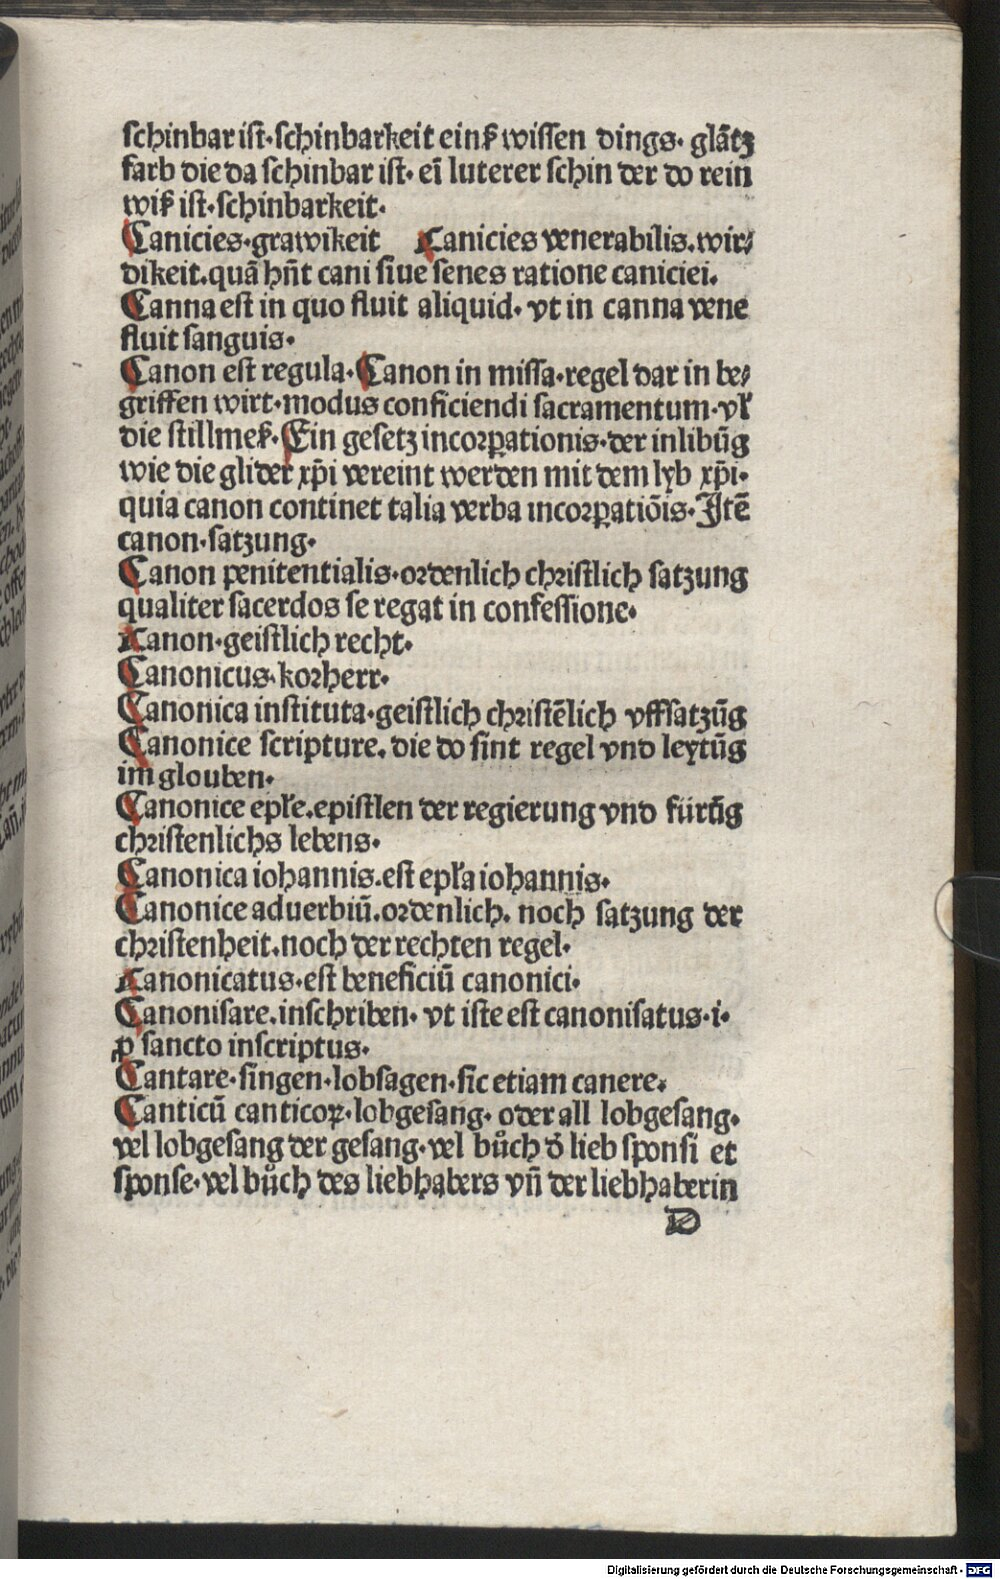 schinbar ist·schinbarkeit einß wissen dings· glātz
farb die da schinbar ist· eī luterer schin der do rein
wiß ist·schinbarkeit·
Canicies·grawikeit Canicies venerabilis.wir⸗
dikeit.quā hn̄t cani siue senes ratione caniciei.
Canna est in quo fluit aliquid· vt in canna vene
fluit sanguis·
Canon est regula·Canon in missa·regel dar in be⸗
griffen wirt·modus conficiendi sacramentum·vł
die stillmeß·Ein gesetz incorꝑationis·der inlibūg
wie die glider xp̄i vereint werden mit dem lyb xp̄i·
quia canon continet talia verba incorꝑatiōis·Itē
canon·satzung·
Canon penitentialis·ordenlich christlich satzung
qualiter sacerdos se regat in confessione·
Canon·geistlich recht·
Canonicus·korherr·
Canonica instituta·geistlich christēlich vffsatzūg
Canonice scripture. die do sint regel vnd leytūg
im glouben·
Canonice epłe.epistlen der regierung vnd fürūg
christenlichs lebens·
Canonica iohannis.est epła iohannis·
Canonice aduerbiū.ordenlich. noch satzung der
christenheit.noch der rechten regel·
Canonicatus·est beneficiū canonici·
Canonisare.inschriben· vt iste est canonisatus·i·
ꝓ sancto inscriptus·
Cantare·singen·lobsagen·sic etiam canere.
Canticū canticoꝝ·lobgesang· oder all lobgesang·
vel lobgesang der gesang·vel bůch d̄ lieb sponsi et
sponse·vel bůch des liebhabers vn̄ der liebhaberin
D
Digitalisierung gefördert durch die Deutsche Forschungsgemeinschaft - DFG